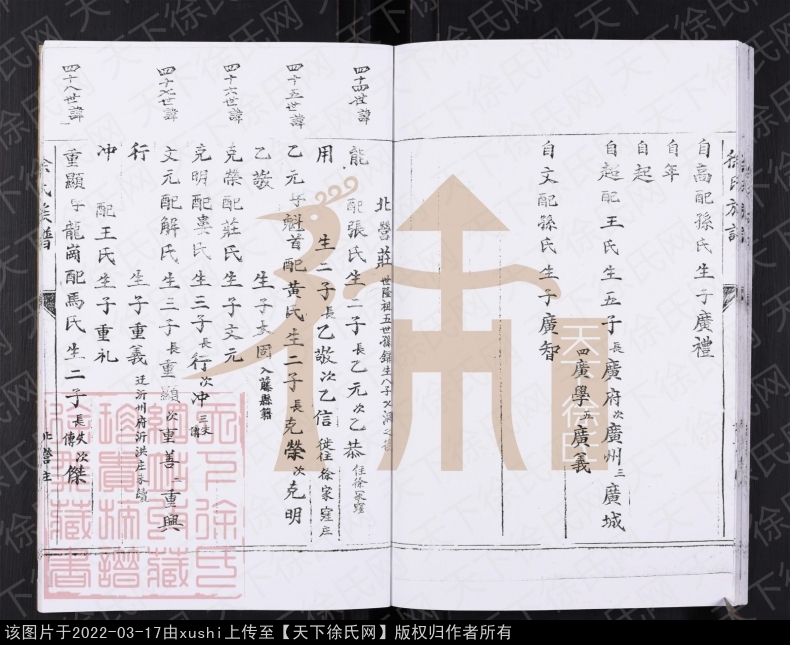 徐氏族譜
自高配孫氏生子廣禮
自年
自起
自超配王氏生五子長廣府次廣州三廣城
四廣學五廣義
自文配孫氏生子廣智
北營莊
四十四世諱
能配張氏生二子長乙元次乙恭住徐家窪
用生二子長乙敬次乙信徙住徐家窪庄
四十五世諱
乙元字魁首配黃氏生二子長克榮次克明
乙敬生子友固入藤縣籍
四十六世諱
克榮配莊氏生子文元
克明配婁氏生三子長行次冲三失傳
四十七世諱
文元配解氏生三子長重顯次重善三重興
行生子重義
冲配王氏生子重礼
四十八世諱
重顯字龍崗配馬氏生二子長失傳次傑
徐氏族譜
北營庄
天下徐氏
该图片于2022-03-17由xushi上传至【天下徐氏网】版权归作者所有